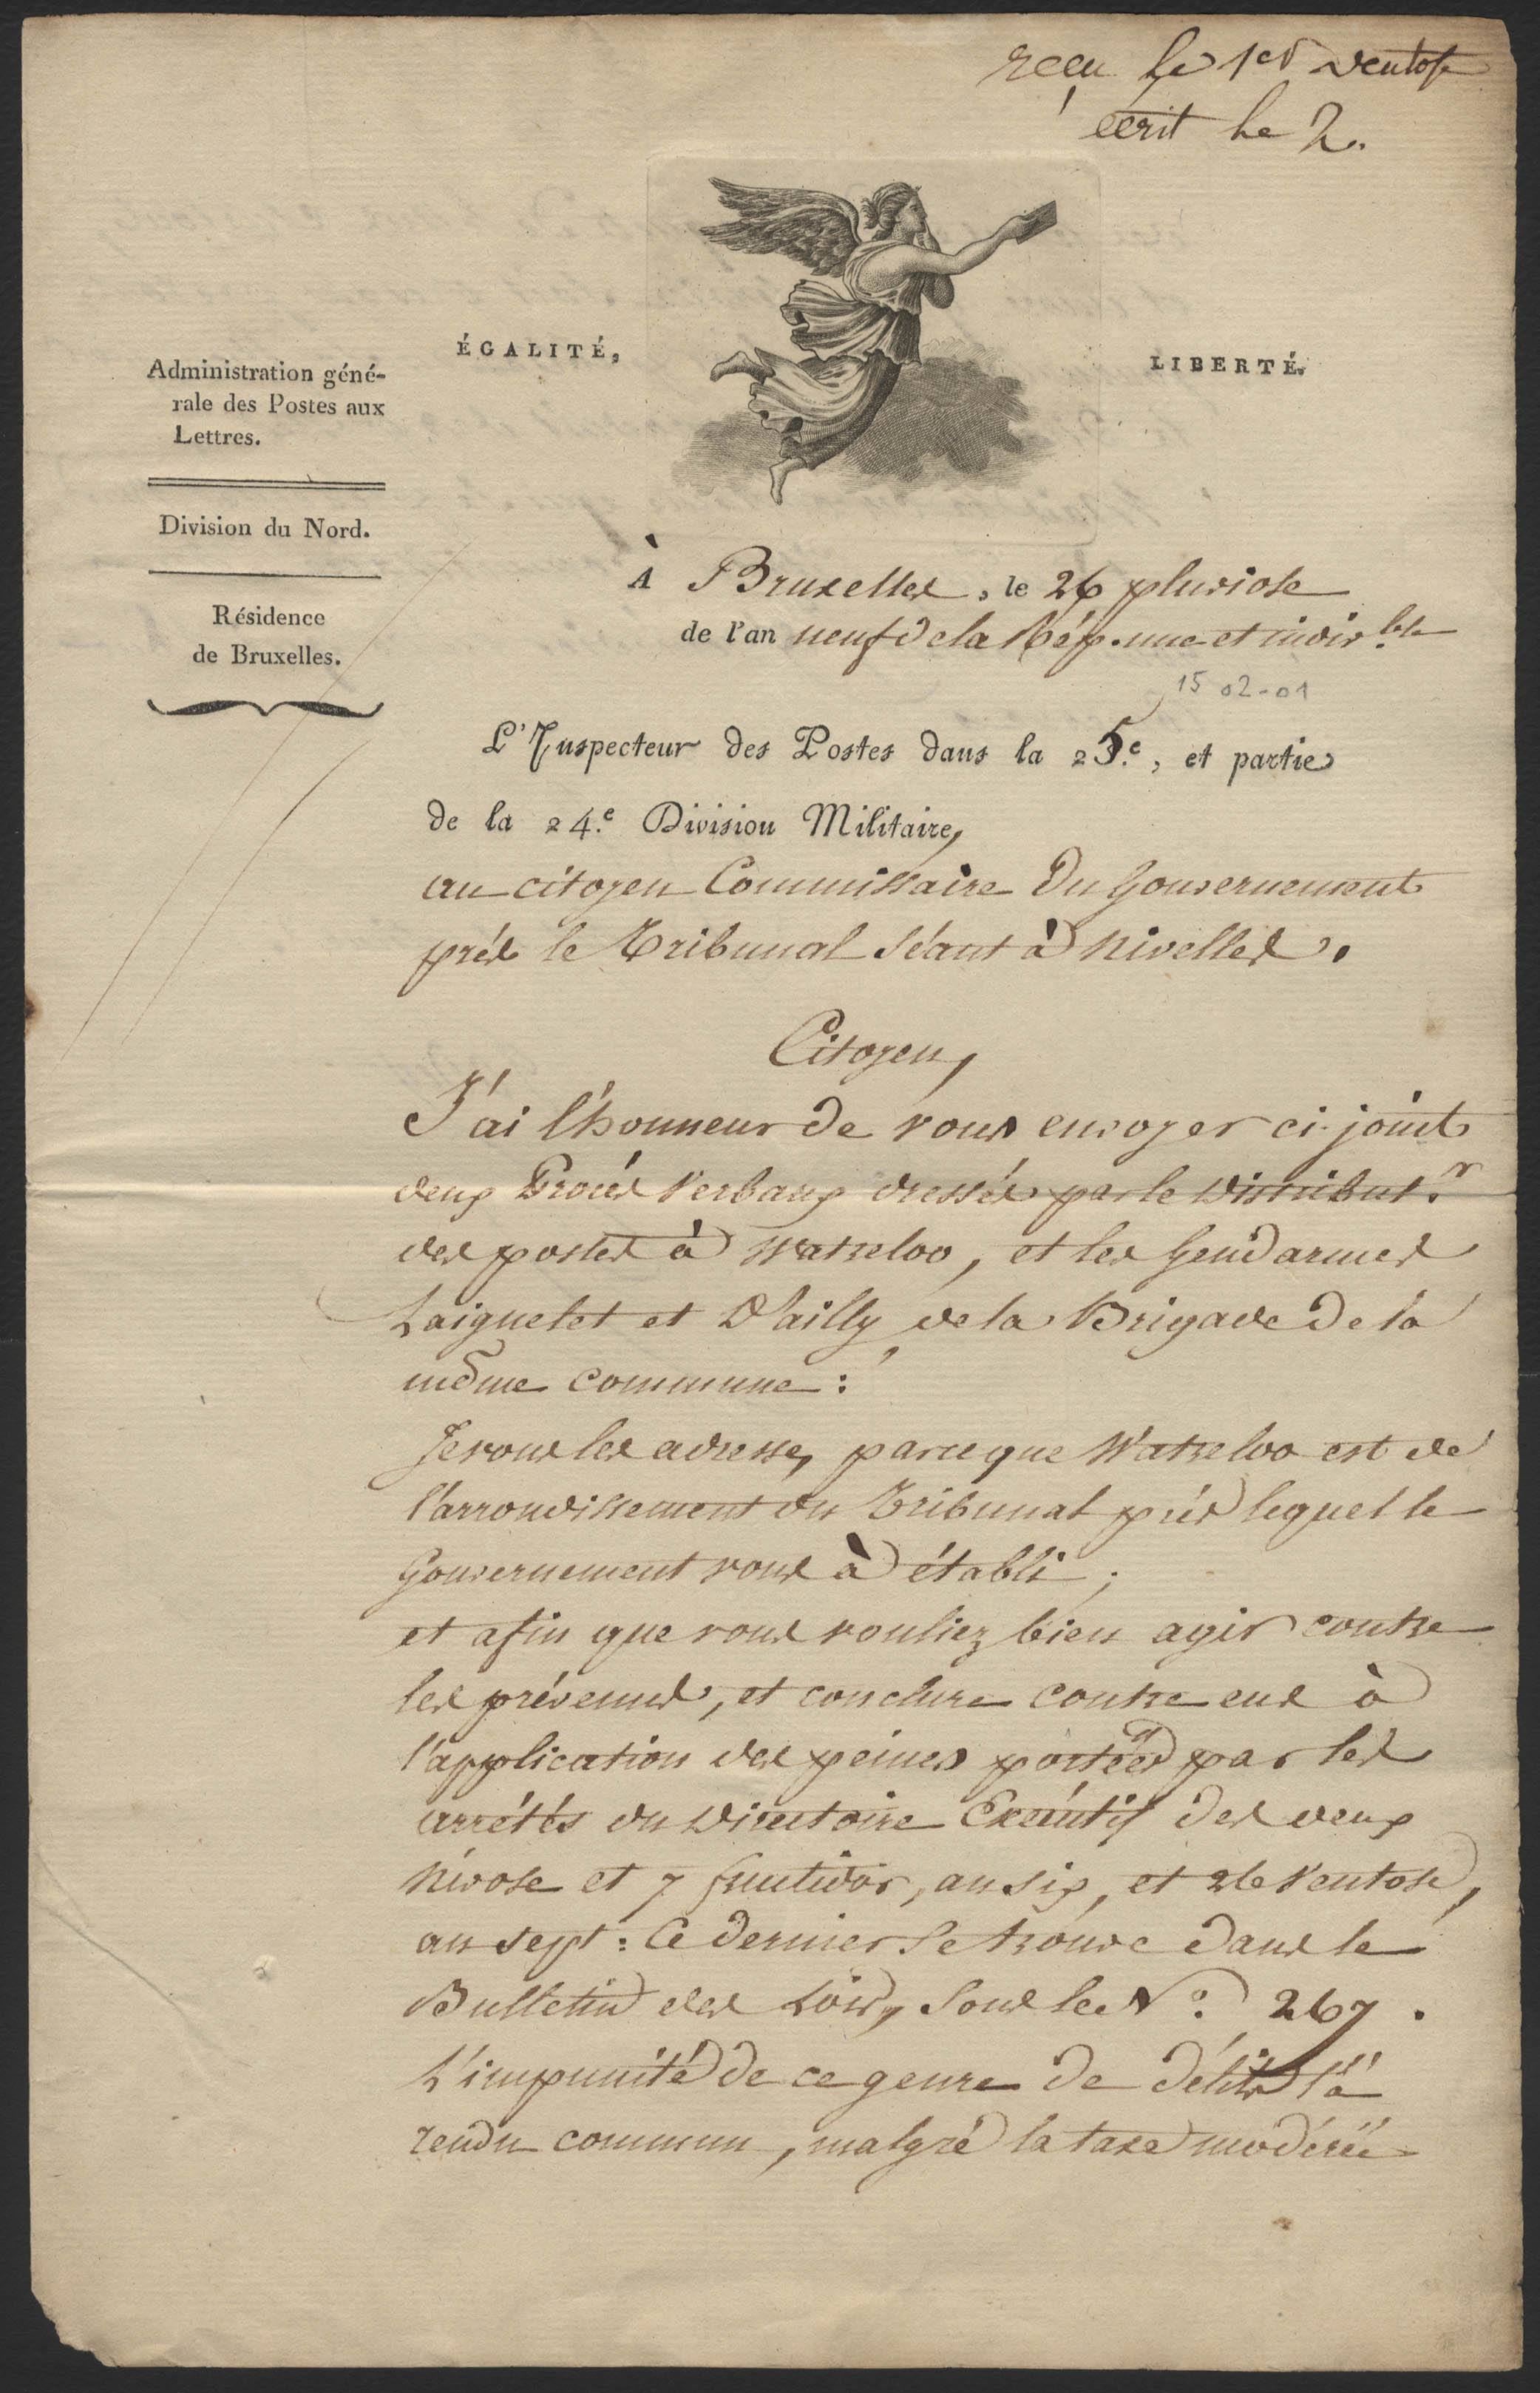 reçu le 1er ventose
écrit le 2.
ÉGALITÉ,
LIBERTÉ.
Administration géné-
rale des Postes aux
Lettres.
Division du Nord.
Résidence
de Bruxelles.
À Bruxelles, le 26 pluviose
de l'an neuf de la Rép. une et indiv.ble
15 02-01
L'Inspecteur des Postes dans la 25.e, et partie
de la 24.e Division Militaire,
au citoyen Commissaire du Gouvernement
prés le Tribunal séant à Nivelles.
Citoyen,
J'ai l'honneur de vous envoyer ci-joint
deux Procès Verbaux dressés par le Distribut.r
des postes à Watreloo, et les Gendarmes
Laiguelet et Dailly de la Brigade de la
même commune :
Je vous les adresse, parceque Watreloo est de
l'arrondissement du Tribunal près lequel le
Gouvernement vous à établi ;
et afin que vous vouliez bien agir contre
les prévenus, et conclure contre eux à
l'application des peines portées par les
arrétés du Directoire Exécutif des deux
Nivose et 7 fructidor, an six, et 26 Ventose,
an sept : Ce dernier se trouve dans le
Bulletin des Lois, sous le N.o 267.
L'impunité de ce genre de délits l'à
rendu commun, malgré la taxe modérée